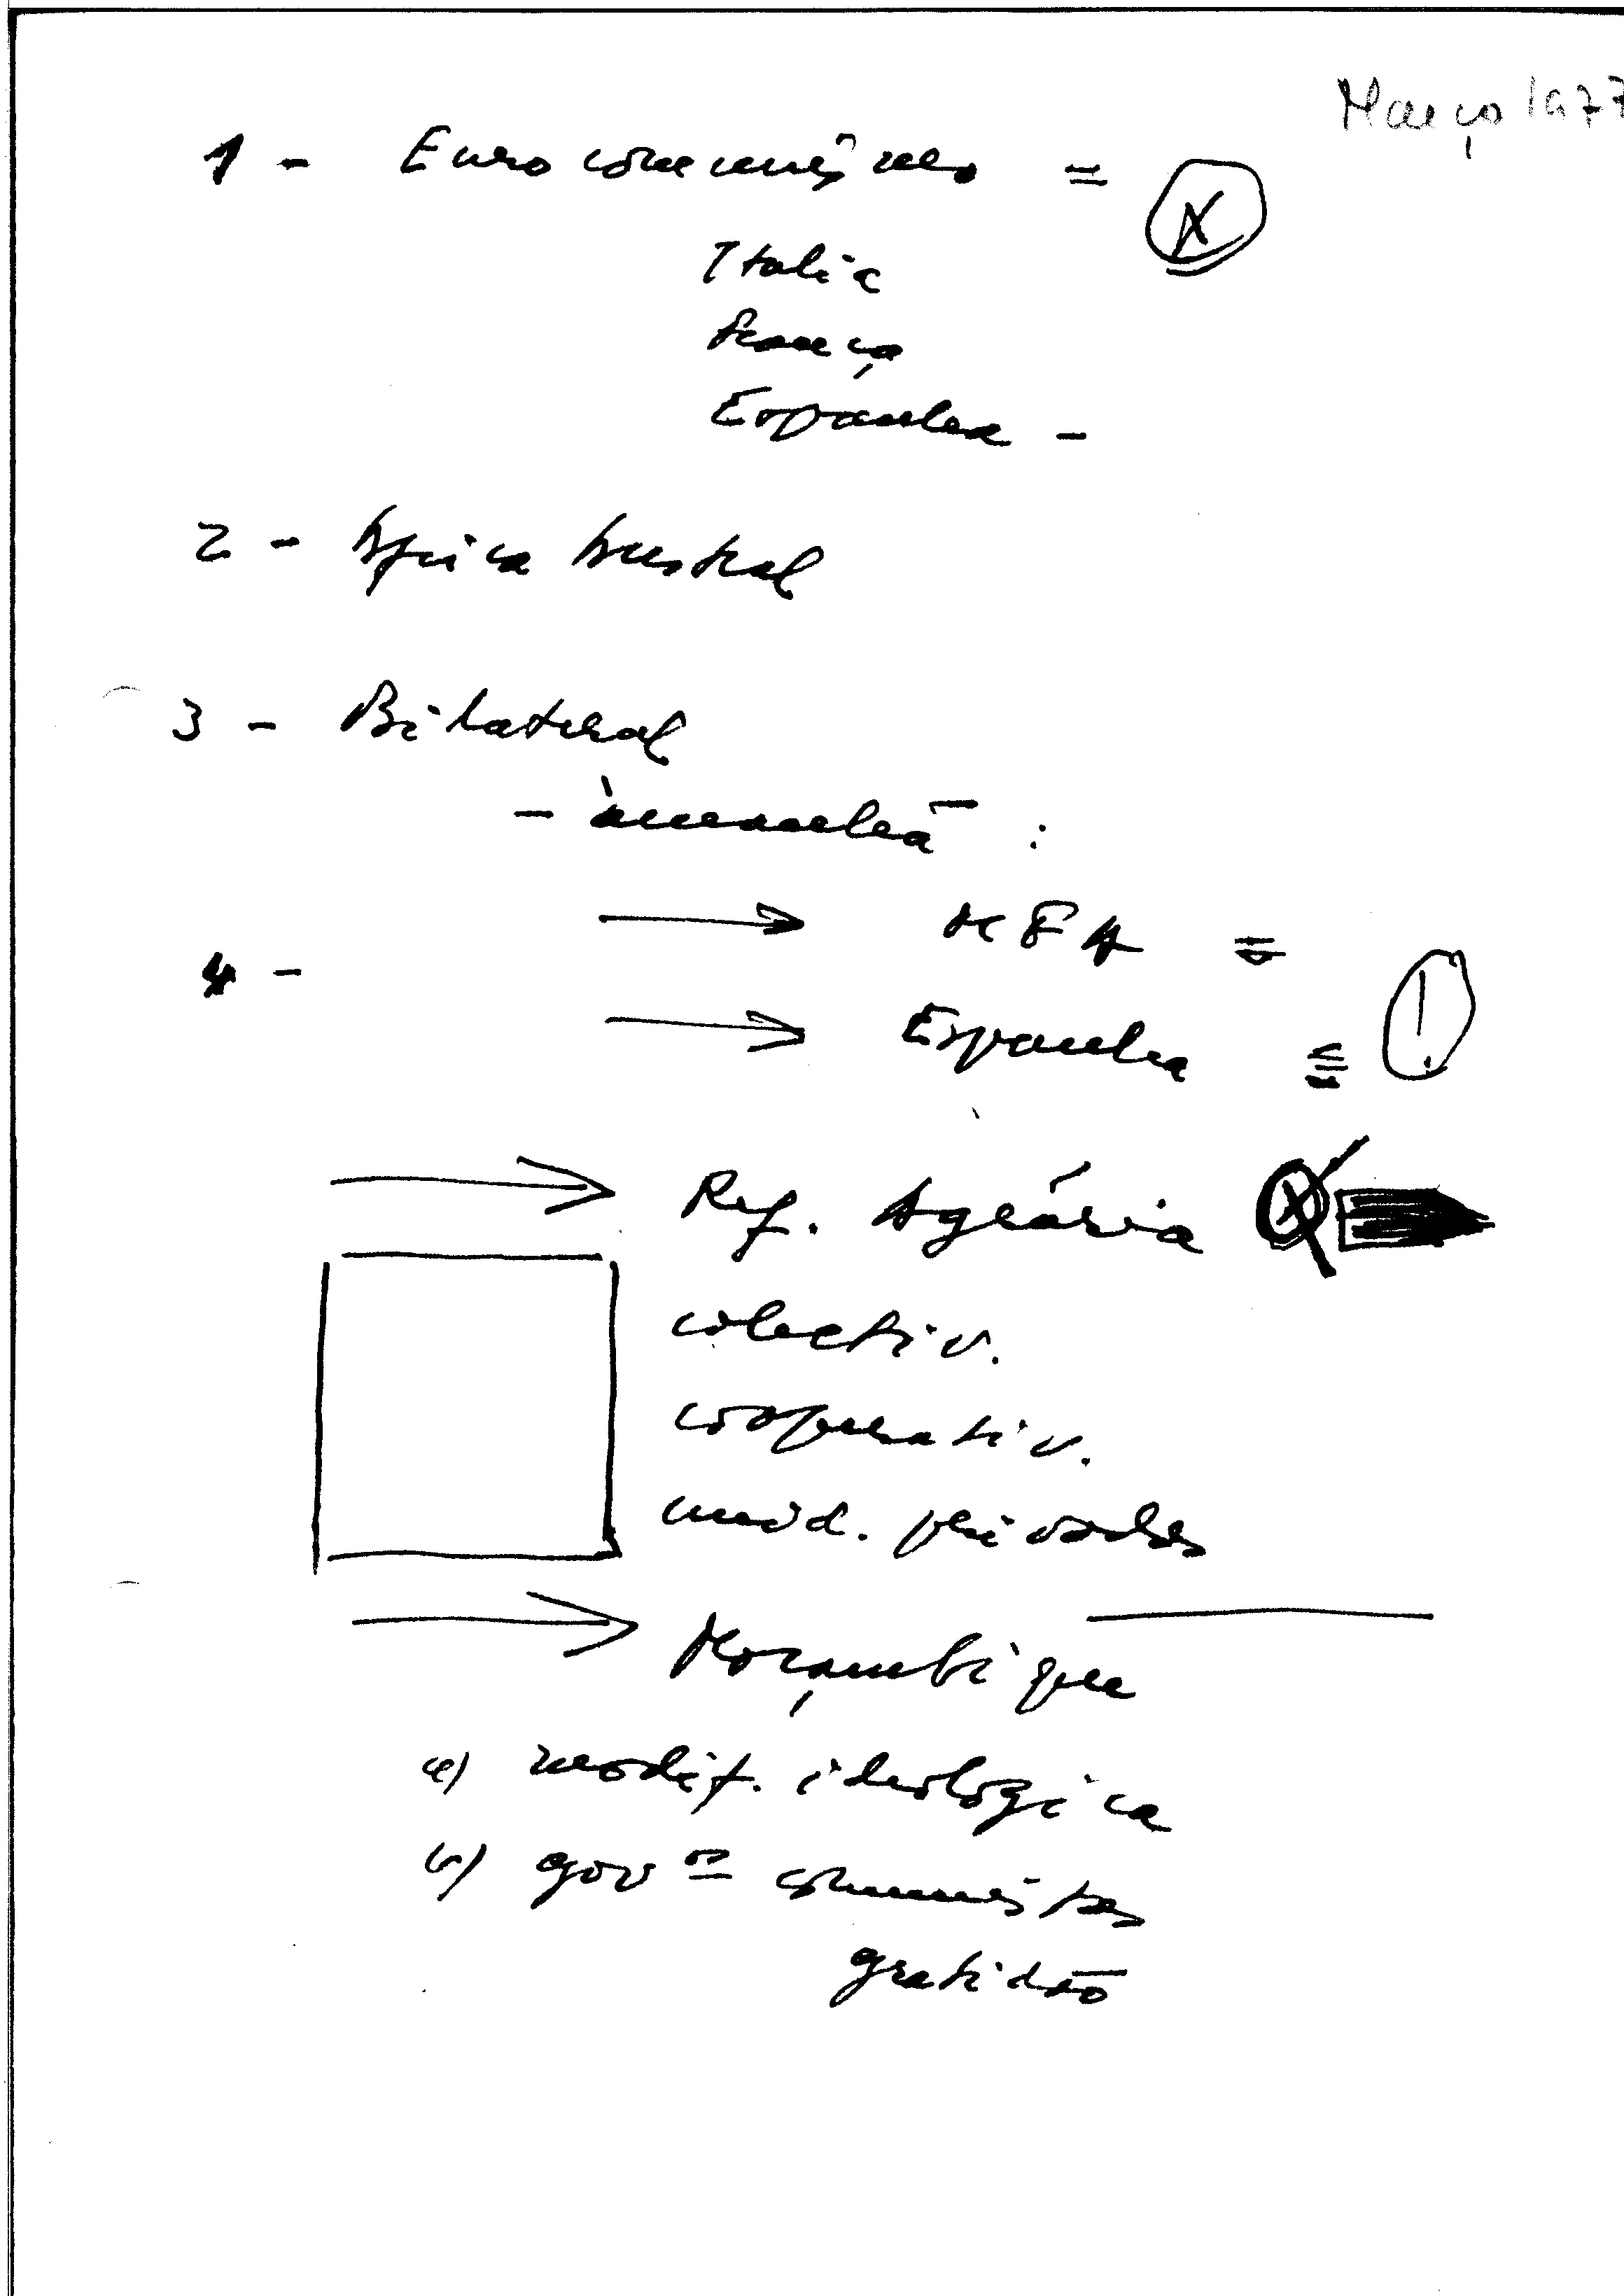 Março 1977
1 - Eurocomunismo =
Italia
França
Espanha -
2 - Africa Austral
3 - Bilateral
- àmanhã :
4 -
Espanha =
Ref. Agrária
colectiv.
cooperativ.
unid. privadas
Moçambique
a) modif. ideologica
b) gov = comunistas
gratidão